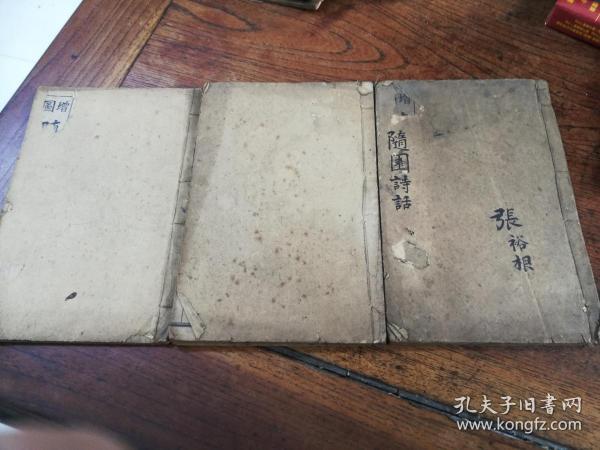 增圖
增
隨園詩話
張裕根
孔夫子旧书网
www.kongfz.com